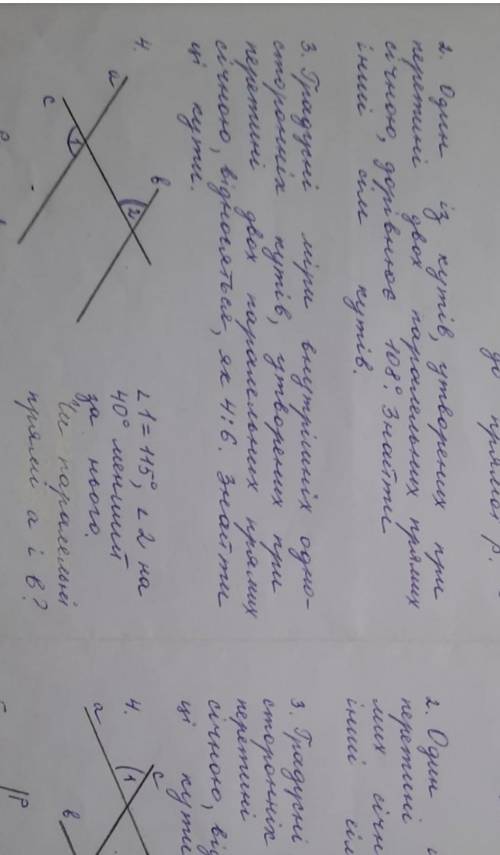 до прямої р.
2. Один із кутів, утворених при
перетині двох паралельних прямих
січною, дорівнює 108°. Знайти
інші сім кутів.
3. Градусні міри внутрішніх одно-
сторонніх кутів, утворених при
перетині двох паралельних прямих
січною, відносяться, як 4:6. Знайти
ці кути.
4.
a
c
1
b
2
∠1=115°, ∠2 на
40° менший
за нього.
Чи паралельні
прямі а і в?
2. Один
перетині
мих січн
інші сім
3. Градусні
сторонніх
перетині
січною, від
ці кути
4.
a
1
c
b
р